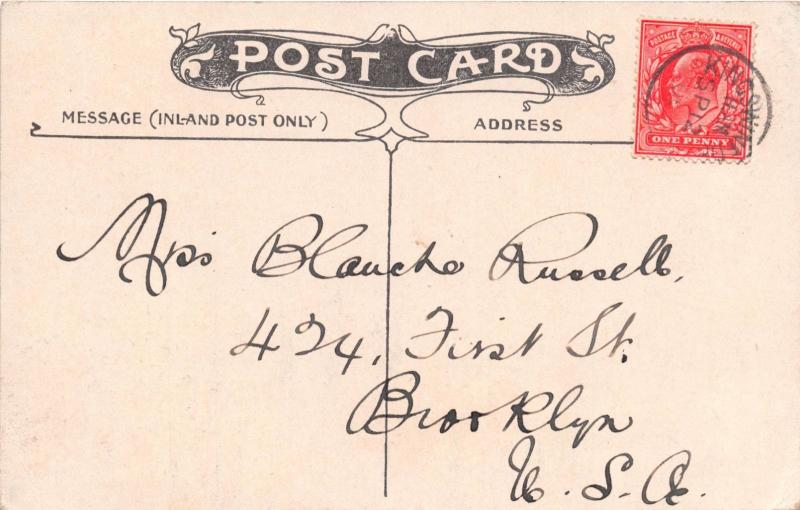 POST CARD
MESSAGE (INLAND POST ONLY)
ADDRESS
POSTAGE & REVENUE
ONE PENNY
Miss Blanche Russell,
424, First St.
Brooklyn
U. S. A.